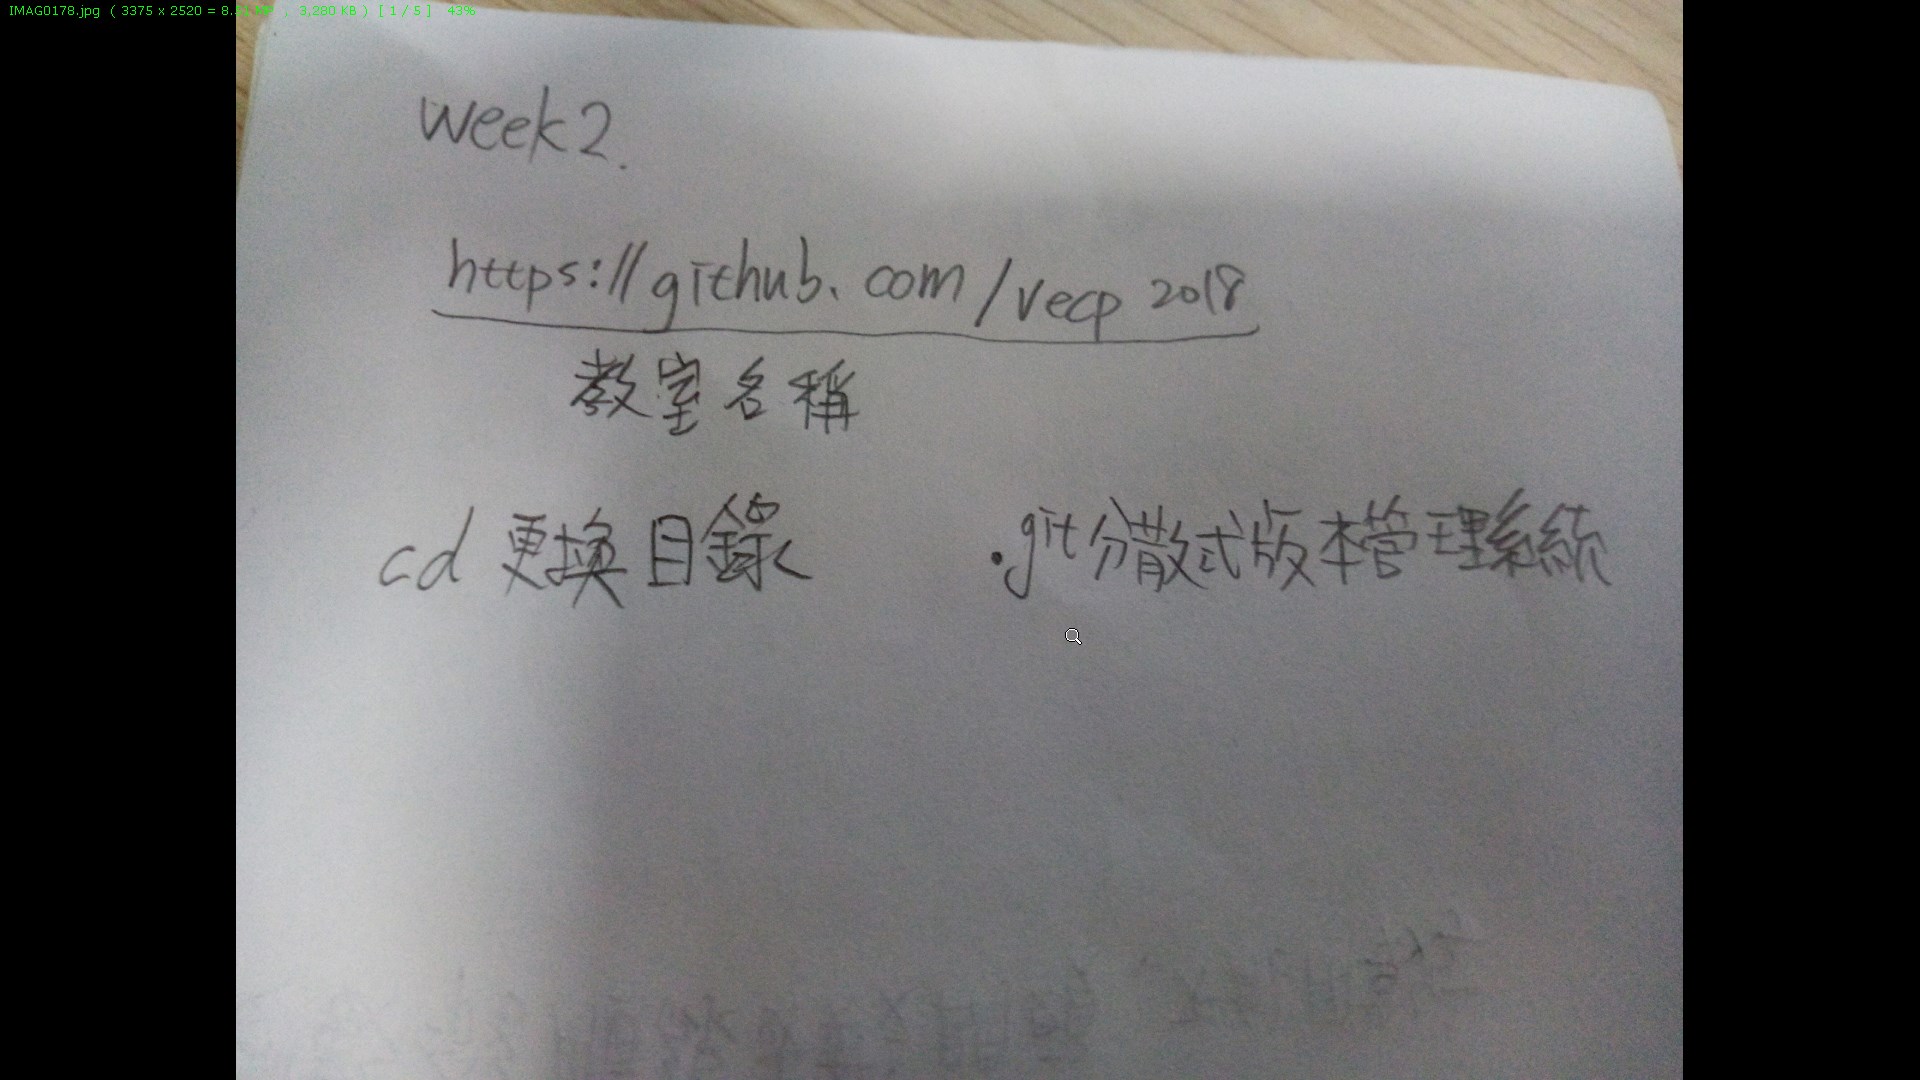 IMAG0178.jpg ( 3375 x 2520 = 8.51 MP , 3,280 KB ) [ 1 / 5 ] 43%
week2.
https://github.com/vecp2018
教室名稱
cd 更換目錄
.git分散式版本管理系統